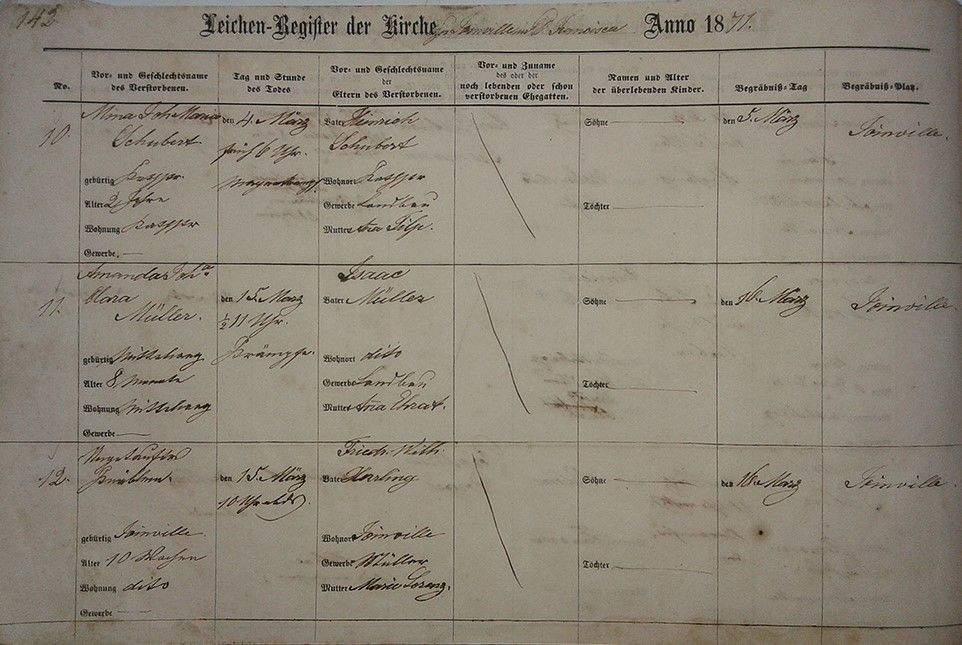 142
Leichen-Register der Kirche zu Joinville in D. Francisca Anno 1871.
No.
Vor- und Geschlechtsname
des Verstorbenen.
Tag und Stunde
des Todes
Vor- und Geschlechtsname
der
Eltern des Verstorbenen.
Vor- und Zuname
des oder der
noch lebenden oder schon
verstorbenen Ehegatten.
Namen und Alter
der überlebenden Kinder.
Begräbniß-Tag
Begräbniß-Platz.
10.
Alma Joh. Maria
Schubert
gebürtig
Alter 2 Jahre
Wohnung
Gewerbe.
den 4 März
früh 6 Uhr.
Vater Heinrich
Schubert
Wohnort
Gewerbe Landbau
Mutter Ana
Söhne
Töchter
den 5. März
Joinville.
11.
Amanda Joha
Clara
Müller.
gebürtig
Alter 8 Monate
Wohnung
Gewerbe
den 15 März
½11 Uhr.
Krämpfe.
Isaac
Vater Müller
Wohnort dito
Gewerbe Landbau
Mutter Ana
Söhne
Töchter
den 16 März
Joinville.
12.
Ungetauftes
gebürtig Joinville
Alter 10 Wochen
Wohnung dito
Gewerbe
den 15. März
10 Uhr
Friedr. Wilh.
Vater
Wohnort Joinville
Gewerbe Müller
Mutter Marie Lorenz.
Söhne
Töchter
den 16. März
Joinville.